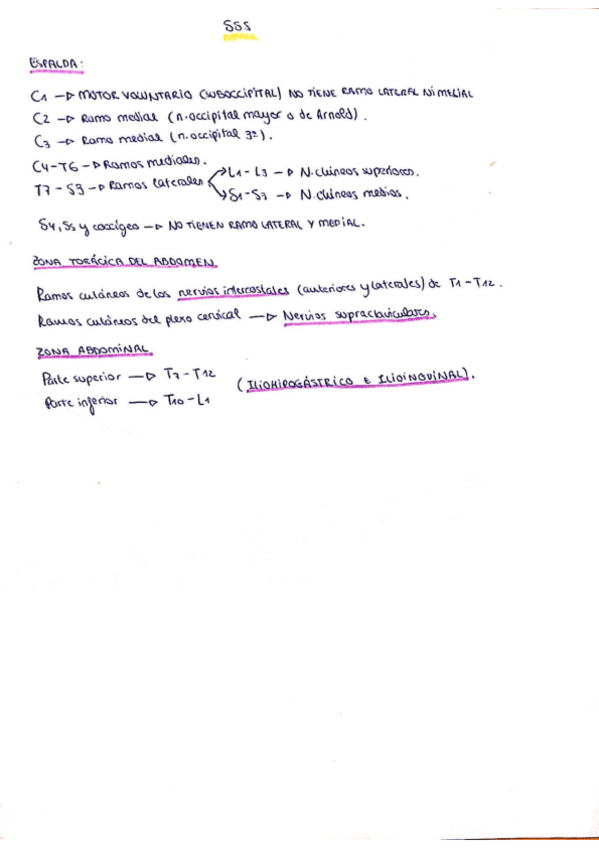 SSS
ESPALDA:
C1 → MOTOR VOLUNTARIO (SUBOCCIPITAL) NO TIENE RAMO LATERAL NI MEDIAL
C2 → Ramo medial (n. occipital mayor o de Arnold).
C3 → Ramo medial (n. occipital 3º).
C4-T6 → Ramos mediales.
T7-S3 → Ramos laterales
L1-L3 → N. cluneos superiores.
S1-S3 → N. cluneos medios.
S4, S5 y coccígeo → NO TIENEN RAMO LATERAL Y MEDIAL.
ZONA TORÁCICA DEL ABDOMEN.
Ramos cutáneos de los nervios intercostales (anteriores y laterales) de T1-T12.
Ramos cutáneos del plexo cervical → Nervios supraclaviculares.
ZONA ABDOMINAL
Parte superior → T7-T12
Parte inferior → T10-L1
(ILIOHIPOGÁSTRICO E ILIOINGUINAL).